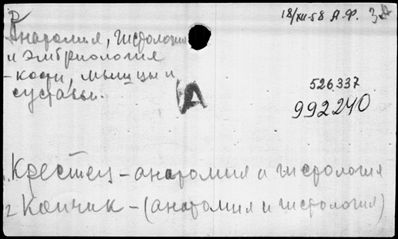 18/XII-58 А.Ф.
Анатомия, гистология
и эмбриология
- кости, мышцы и
суставы.
А
526,337
992240
1. Крестец - анатомия и гистология
2 Копчик - (анатомия и гистология)